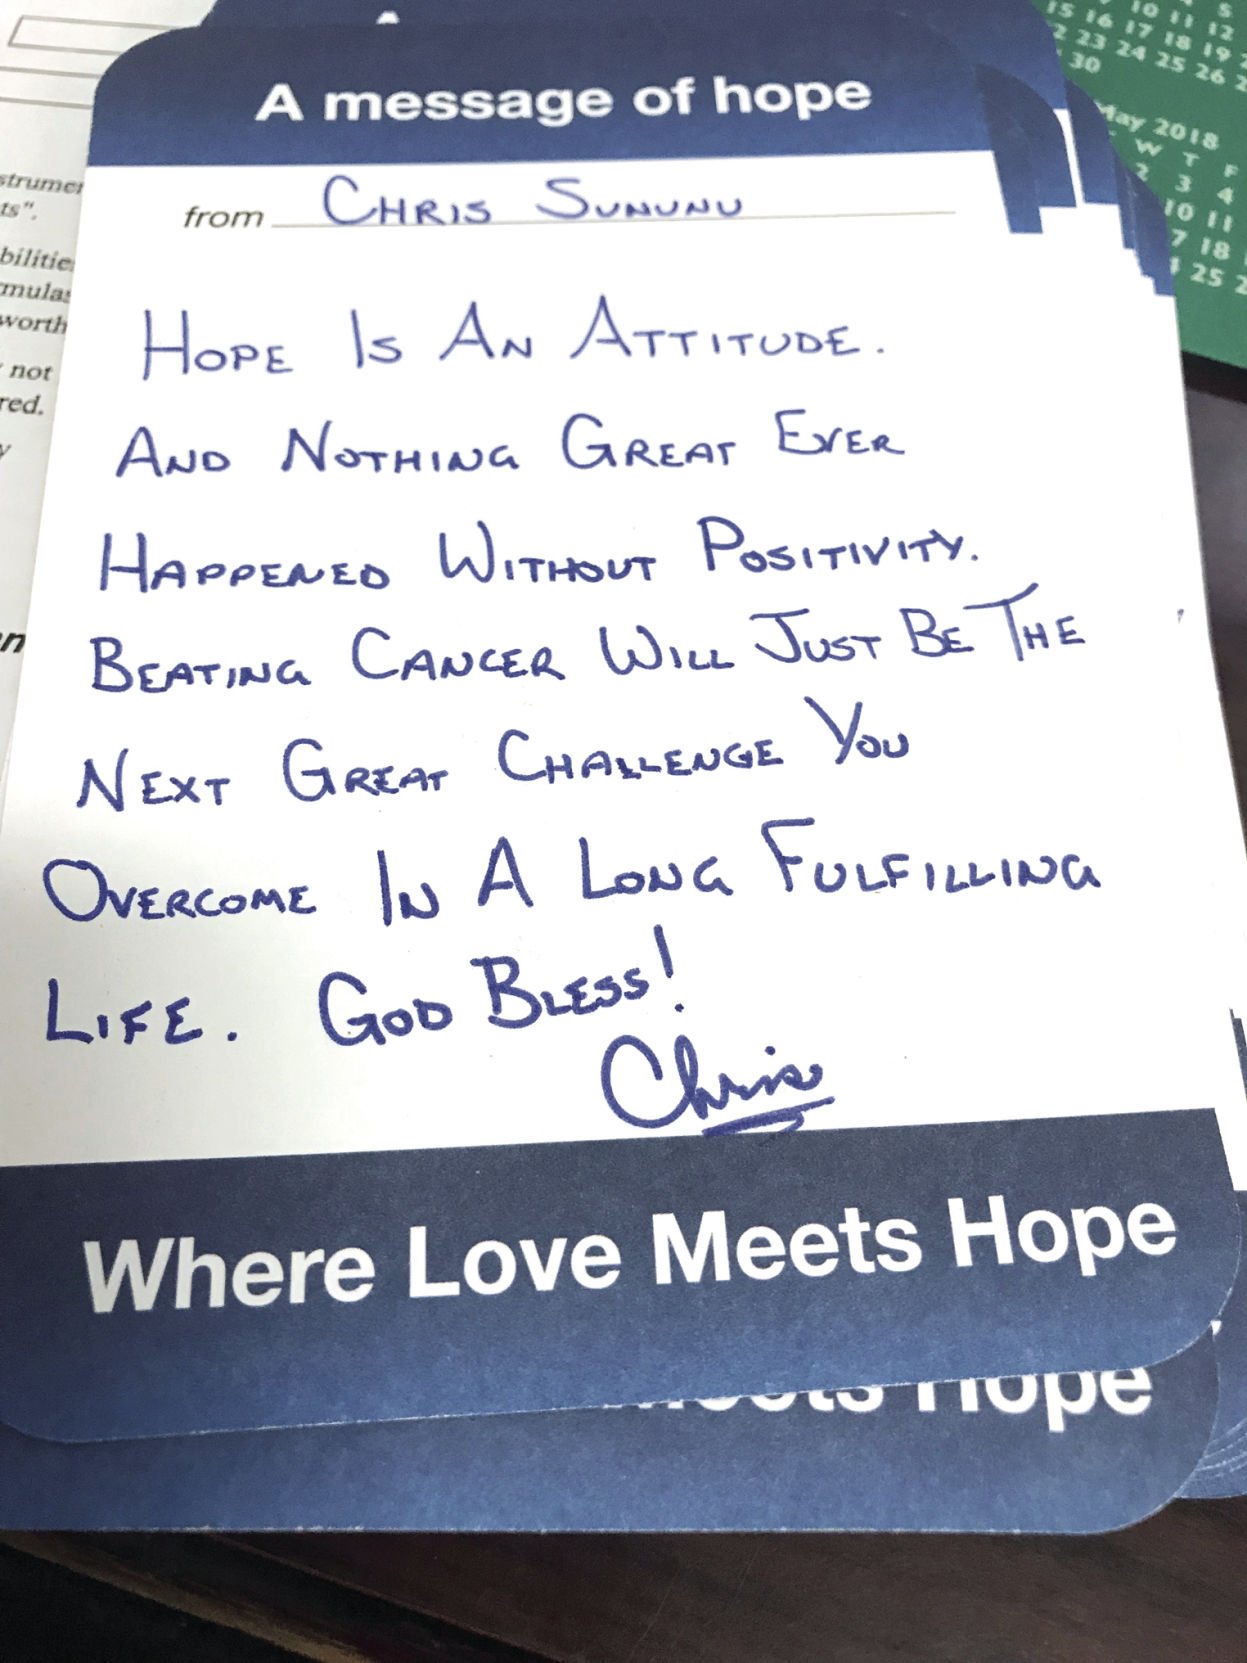 A message of hope
from CHRIS SUNUNU
HOPE IS AN ATTITUDE.
AND NOTHING GREAT EVER
HAPPENED WITHOUT POSITIVITY.
BEATING CANCER WILL JUST BE THE
NEXT GREAT CHALLENGE YOU
OVERCOME IN A LONG FULFILLING
LIFE. GOD BLESS!
Chris
Where Love Meets Hope
Hope
ts".
not
10 11 12
15 16 17 18 19
23 24 25 26
30
May 2018
W T F
2 3 4
10 11
18
25